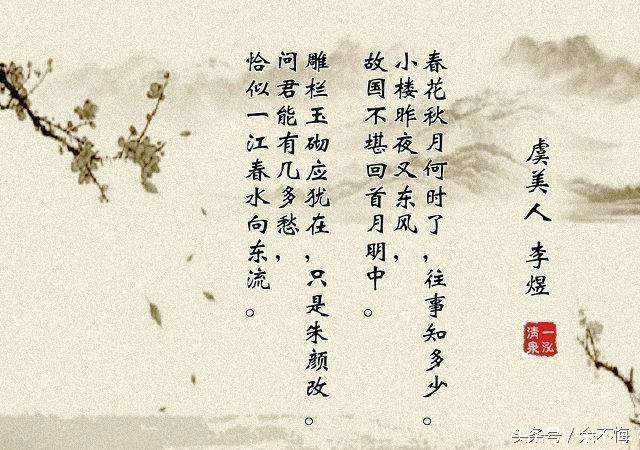 虞美人 李煜
一泓
清泉
春花秋月何时了,往事知多少。
小楼昨夜又东风,
故国不堪回首月明中。
雕栏玉砌应犹在,只是朱颜改。
问君能有几多愁,
恰似一江春水向东流。
头条号 / 不悔